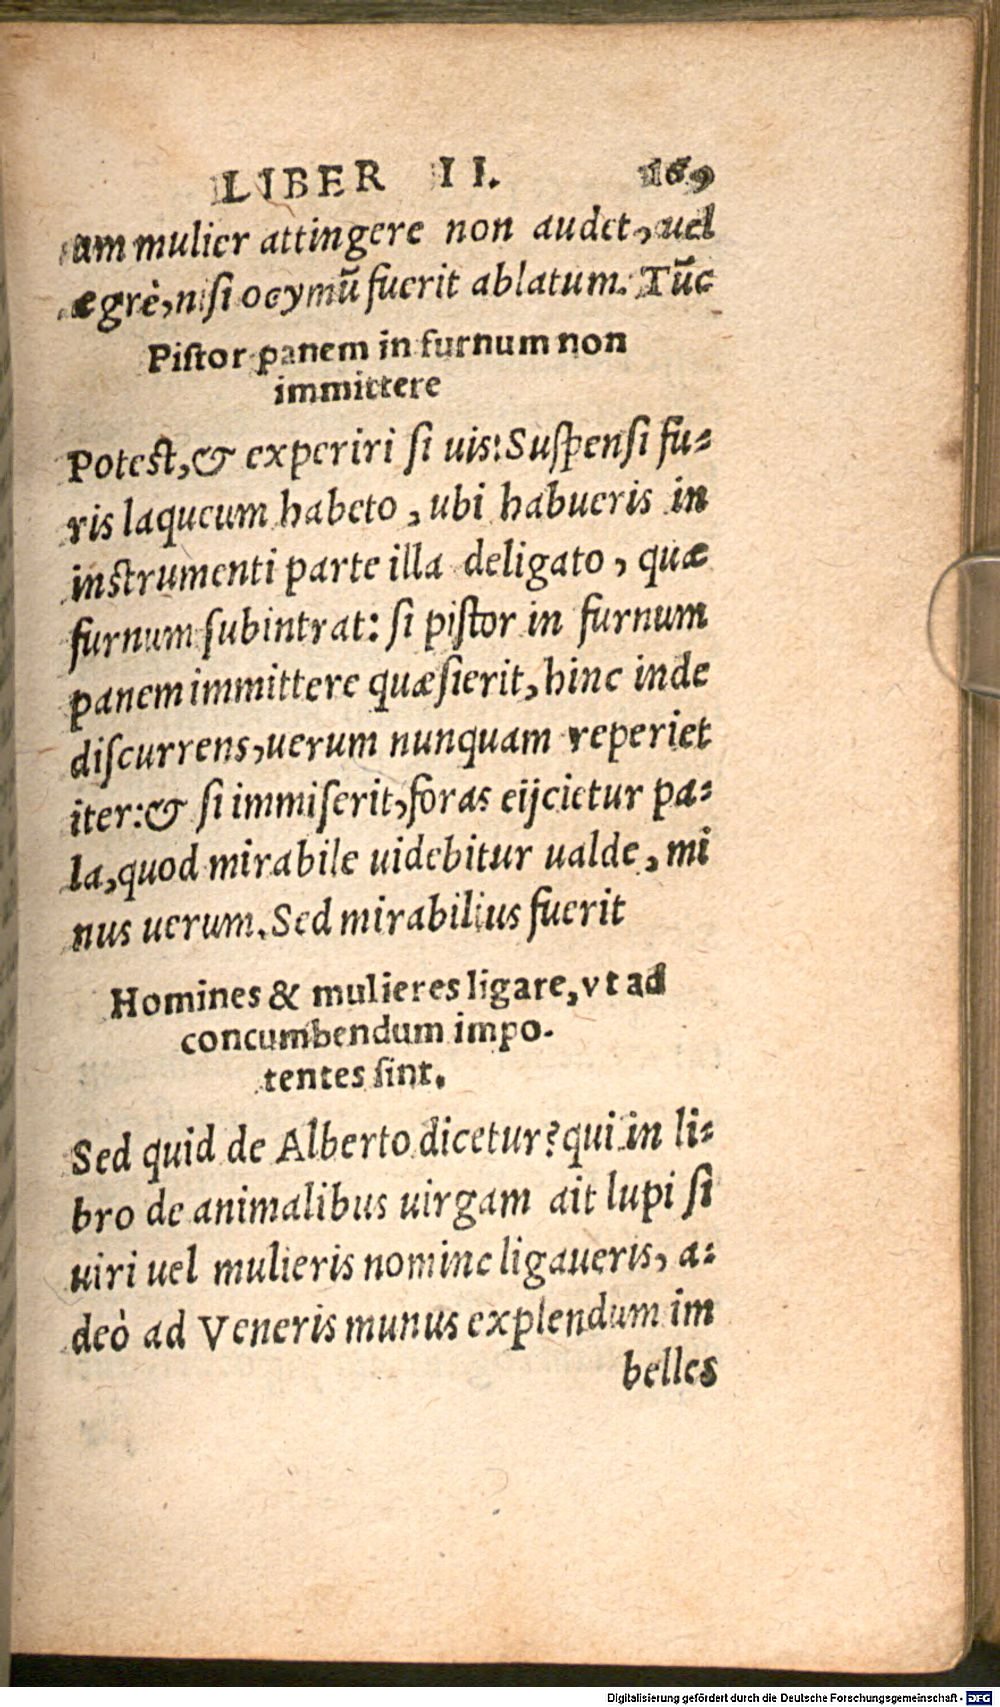 LIBER II. 169
am mulier attingere non audet, uel
ægrè, nisi ocymū fuerit ablatum. Tūc
Piſtor panem in furnum non
immittere
Potest, & experiri ſi uis: Suſpenſi fu-
ris laqueum habeto, ubi habueris in
instrumenti parte illa deligato, quæ
furnum ſubintrat: ſi piſtor in furnum
panem immittere quæſierit, hinc inde
diſcurrens, uerum nunquam reperiet
iter: & ſi immiſerit, foras eijcietur pa-
la, quod mirabile uidebitur ualde, mi
nus uerum. Sed mirabilius fuerit
Homines & mulieres ligare, vt ad
concumbendum impo-
tentes ſint.
Sed quid de Alberto dicetur? qui in li-
bro de animalibus uirgam ait lupi ſi
uiri uel mulieris nomine ligaueris, a-
deò ad Veneris munus explendum im
belles
Digitalisierung gefördert durch die Deutsche Forschungsgemeinschaft - DFG